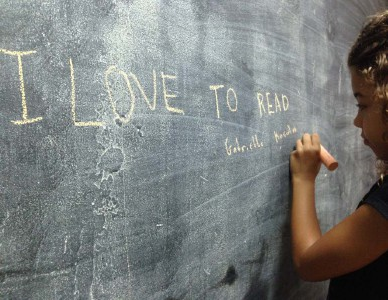 I LOVE TO READ
Gabrielle